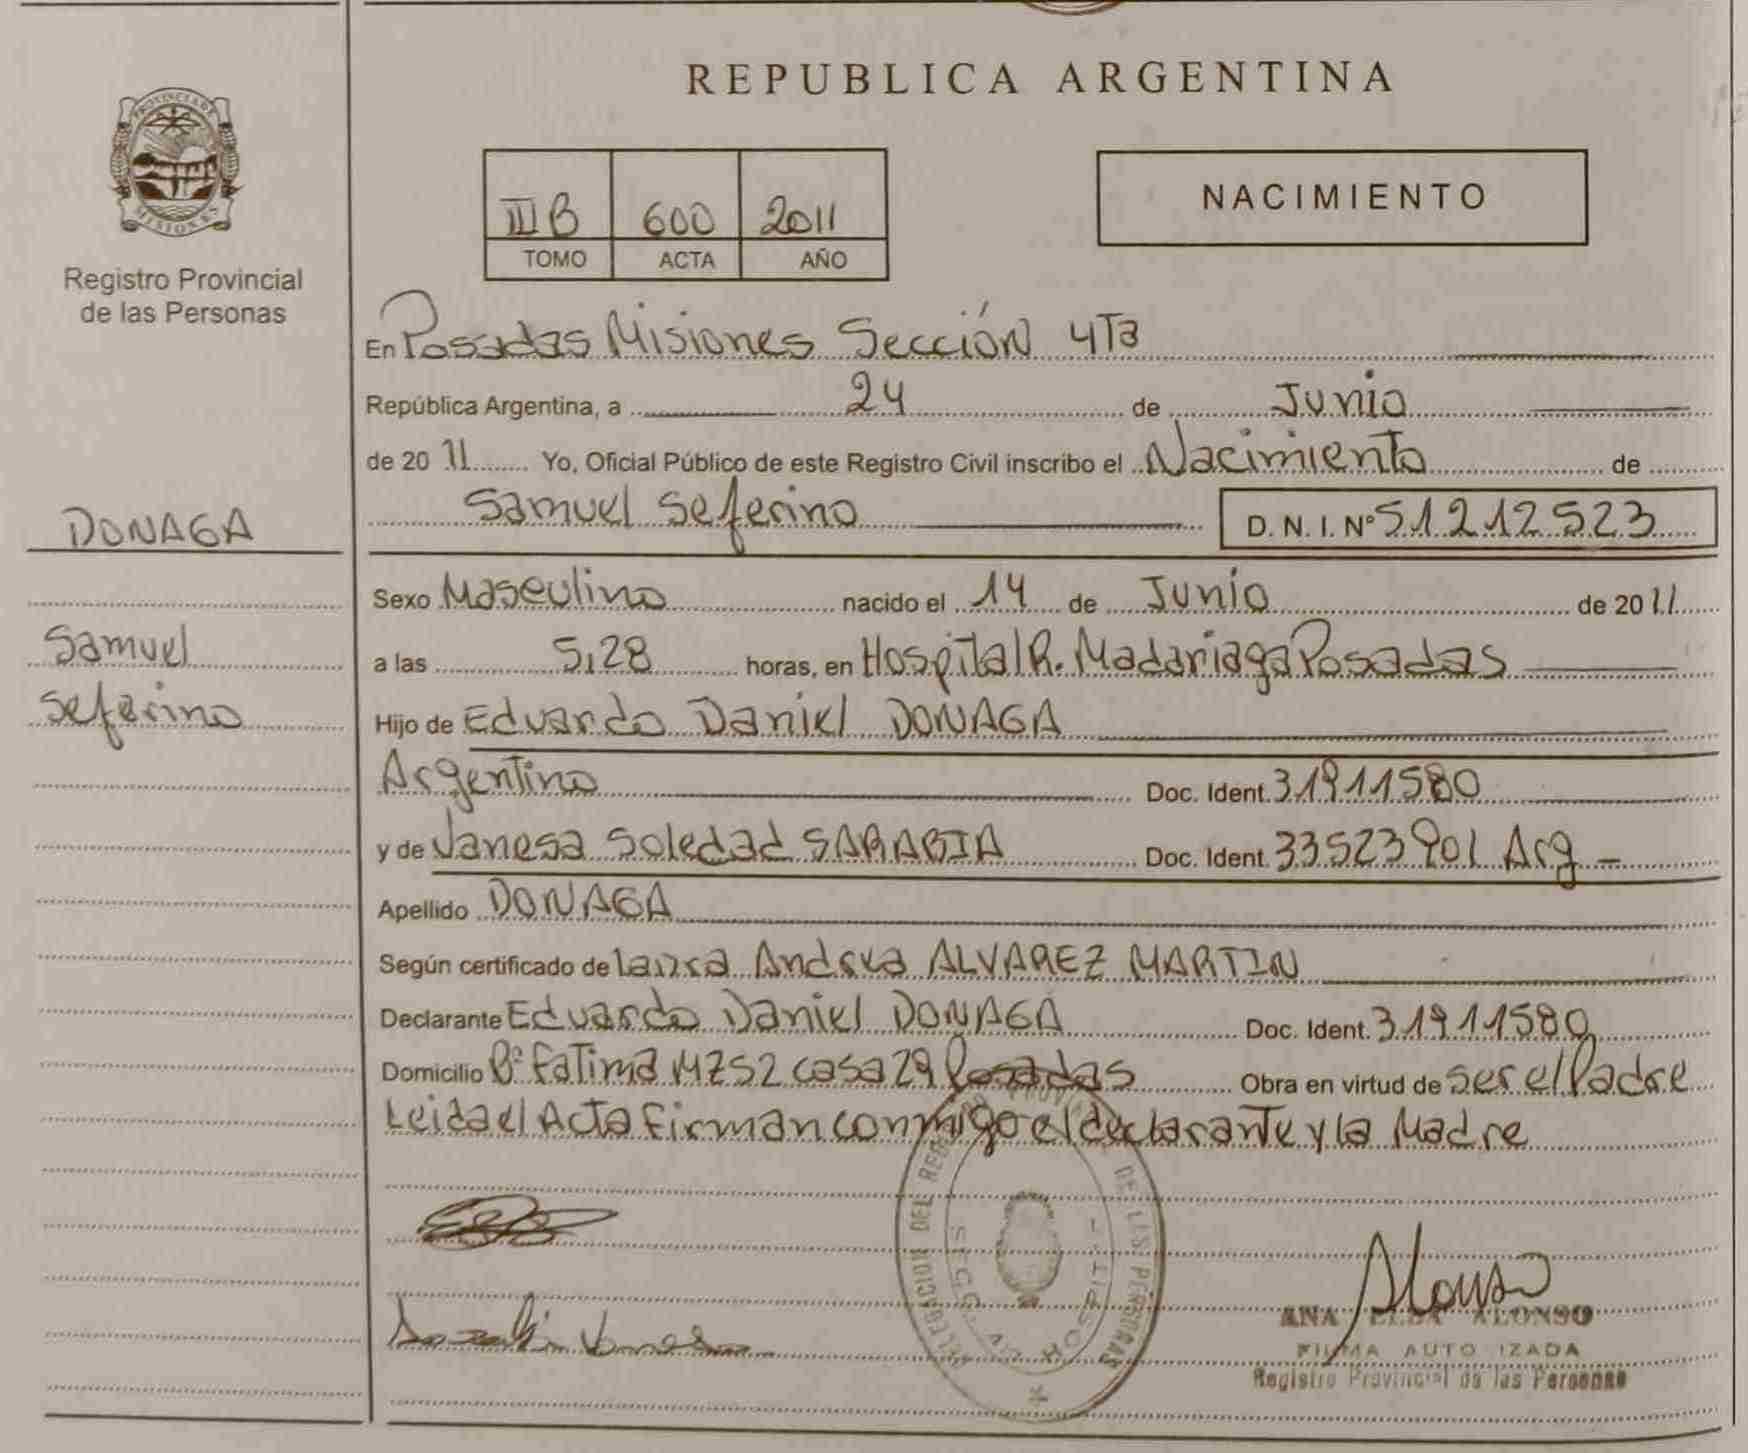 REPUBLICA ARGENTINA
PROVINCIA DE
MISIONES
Registro Provincial
de las Personas
III B 600 2011
TOMO ACTA AÑO
NACIMIENTO
En Posadas Misiones Sección 4Ta
República Argentina, a 24 de Junio
de 20 11 Yo, Oficial Público de este Registro Civil inscribo el Nacimiento de
Samuel Seferino D. N. I. Nº 51212523
DONAGA
Samuel
Seferino
Sexo Masculino nacido el 14 de Junio de 20 11
a las 5,28 horas, en Hospital R. Madariaga Posadas
Hijo de Eduardo Daniel DONAGA
Argentino Doc. Ident. 31911580
y de Vanesa Soledad SARABIA Doc. Ident. 33523901 Arg –
Apellido DONAGA
Según certificado de Andrea ALVAREZ MARTIN
Declarante Eduardo Daniel DONAGA Doc. Ident. 31911580
Domicilio Bº Fatima MZ52 casa 29 Posadas Obra en virtud de ser el Padre
Leida el Acta Firman conmigo el declarante y la Madre
DELEGACION DEL DE LAS PERSONAS
SECC. HOSPITAL
Alonso
ANA ELSA ALONSO
FIRMA AUTORIZADA
Registro Provincial de las Personas